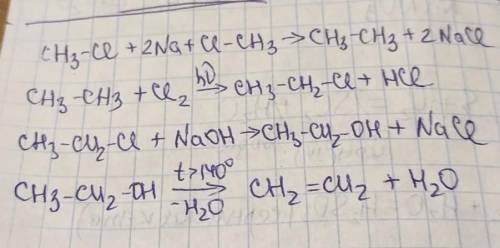 CH3-Cl + 2Na + Cl-CH3 → CH3-CH3 + 2NaCl
CH3-CH3 + Cl2 hν→ CH3-CH2-Cl + HCl
CH3-CH2-Cl + NaOH → CH3-CH2-OH + NaCl
CH3-CH2-OH t>140°→ -H2O CH2=CH2 + H2O